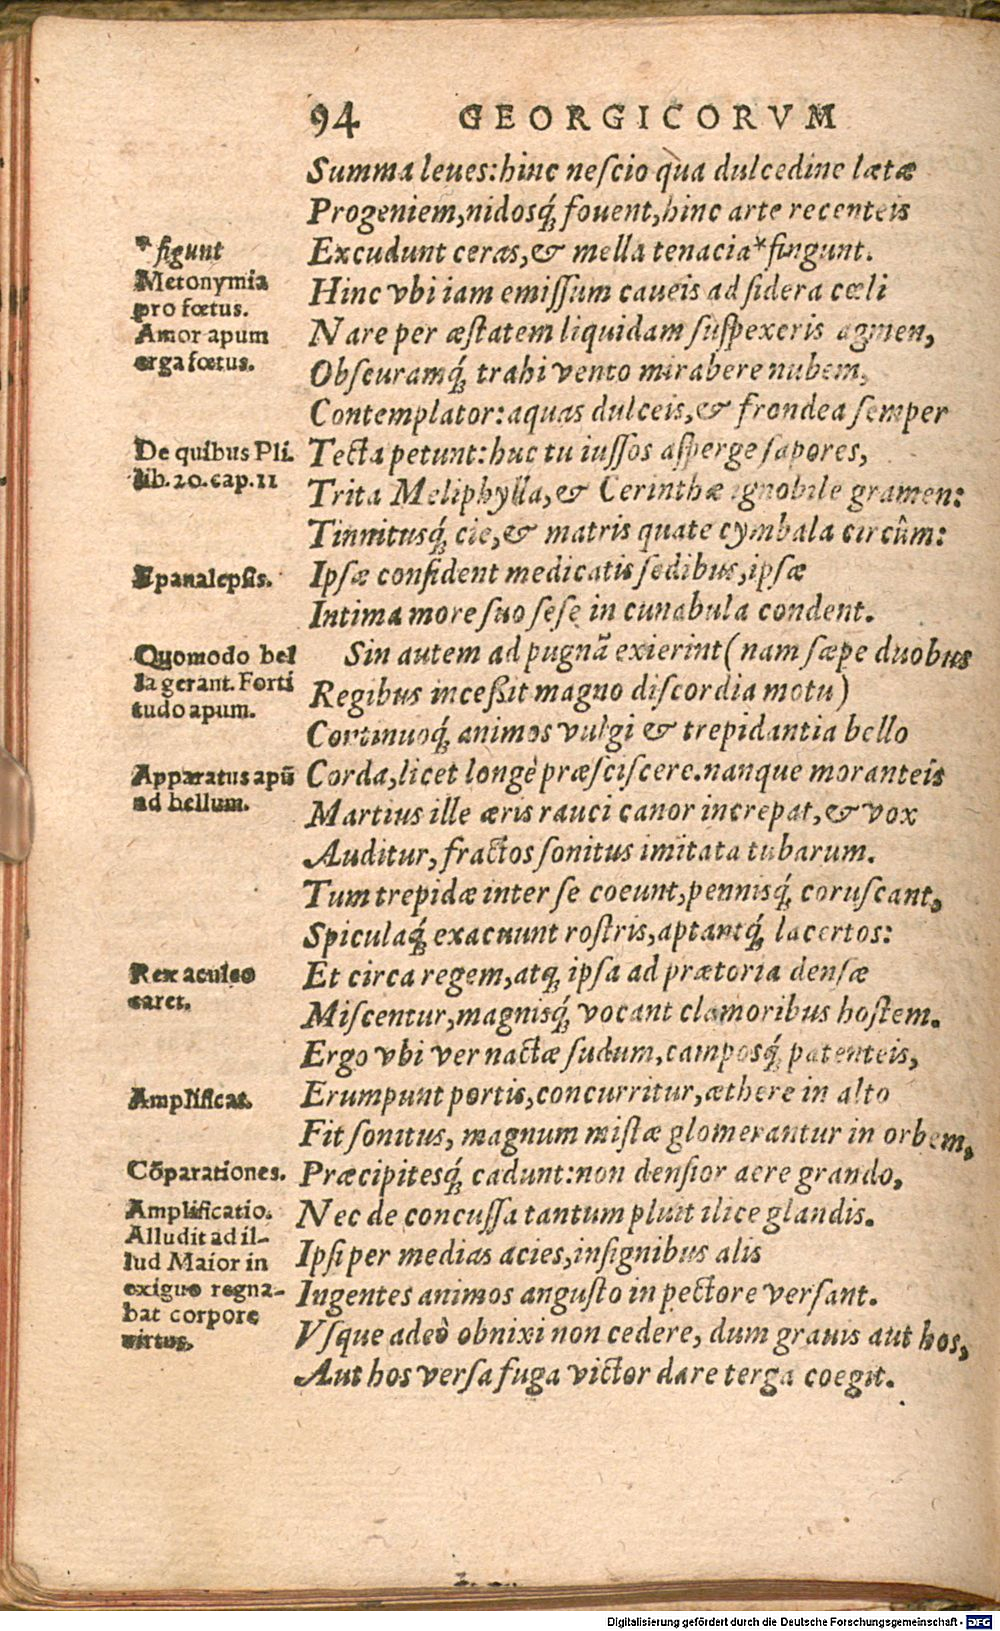 94 GEORGICORVM
Summa leues:hinc neſcio qua dulcedine lætæ
Progeniem,nidosq́; fouent,hinc arte recenteis
Excudunt ceras,& mella tenacia*fingunt.
Hinc vbi iam emiſſum caueis ad ſidera cœli
Nare per æſtatem liquidam ſuſpexeris agmen,
Obſcuramq́; trahi vento mirabere nubem,
Contemplator:aquas dulceis,& frondea ſemper
Tecta petunt:huc tu iuſſos aſperge ſapores,
Trita Meliphylla,& Cerinthæ ignobile gramen:
Tinnitusq́; cie,& matris quate cymbala circûm:
Ipſæ conſident medicatis ſedibus,ipſæ
Intima more ſuo ſeſe in cunabula condent.
Sin autem ad pugnã exierint(nam ſæpe duobus
Regibus inceßit magno diſcordia motu)
Continuoq́; animos vulgi & trepidantia bello
Corda,licet longè præſciſcere.nanque moranteis
Martius ille æris rauci canor increpat,& vox
Auditur,fractos ſonitus imitata tubarum.
Tum trepidæ inter ſe coeunt,pennisq́; coruſcant,
Spiculaq́; exacuunt roſtris,aptantq́; lacertos:
Et circa regem,atq; ipſa ad prætoria denſæ
Miſcentur,magnisq́; vocant clamoribus hoſtem.
Ergo vbi ver nactæ ſudum,camposq́; patenteis,
Erumpunt portis,concurritur,æthere in alto
Fit ſonitus, magnum miſtæ glomerantur in orbem,
Præcipitesq́; cadunt:non denſior aere grando,
Nec de concuſſa tantum pluit ilice glandis.
Ipſi per medias acies,inſignibus alis
Ingentes animos anguſto in pectore verſant.
Vſque adeò obnixi non cedere, dum grauis aut hos,
Aut hos verſa fuga victor dare terga coegit.
* figunt
Metonymia
pro fœtus.
Amor apum
erga fœtus.
De quibus Pli.
lib.20.cap.11
Epanalepſis.
Quomodo bel
la gerant. Forti
tudo apum.
Apparatus apũ
ad bellum.
Rex aculeo
caret.
Amplificat.
Cõparationes.
Amplificatio.
Alludit ad il-
lud Maior in
exiguo regna-
bat corpore
virtus.
Digitalisierung gefördert durch die Deutsche Forschungsgemeinschaft - DFG